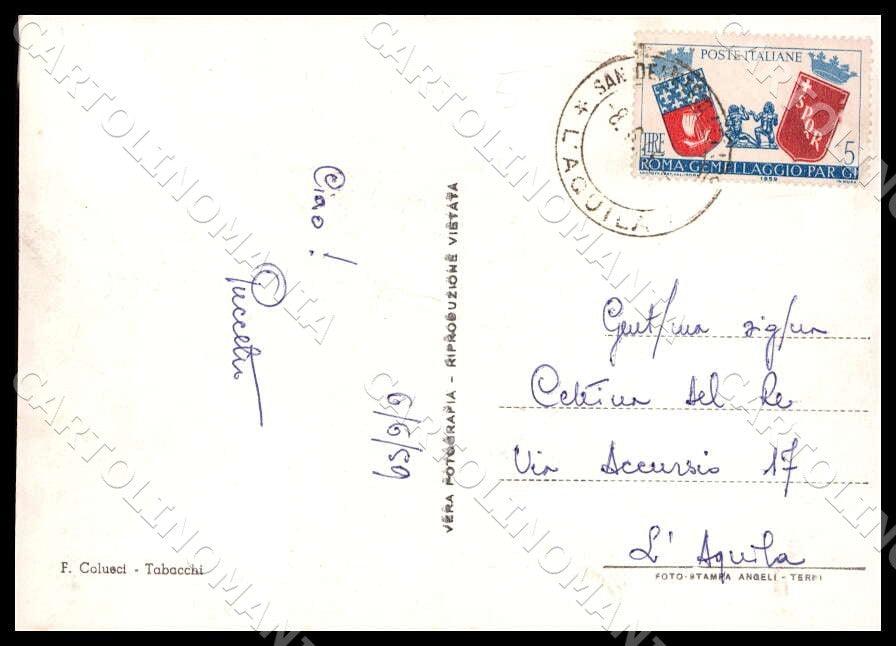 POSTE ITALIANE
SPQR
LIRE 5
ROMA·GEMELLAGGIO·PAR GI
1959
SAN DE
* L'AQUILA
Ciao!
6/6/59
VERA FOTOGRAFIA - RIPRODUZIONE VIETATA
Gent/ma sig/na
Cettina del Re
Via Accursio 17
L'Aquila
F. Colucci - Tabacchi
FOTO-STAMPA ANGELI - TERNI
CARTOLINOMANIA